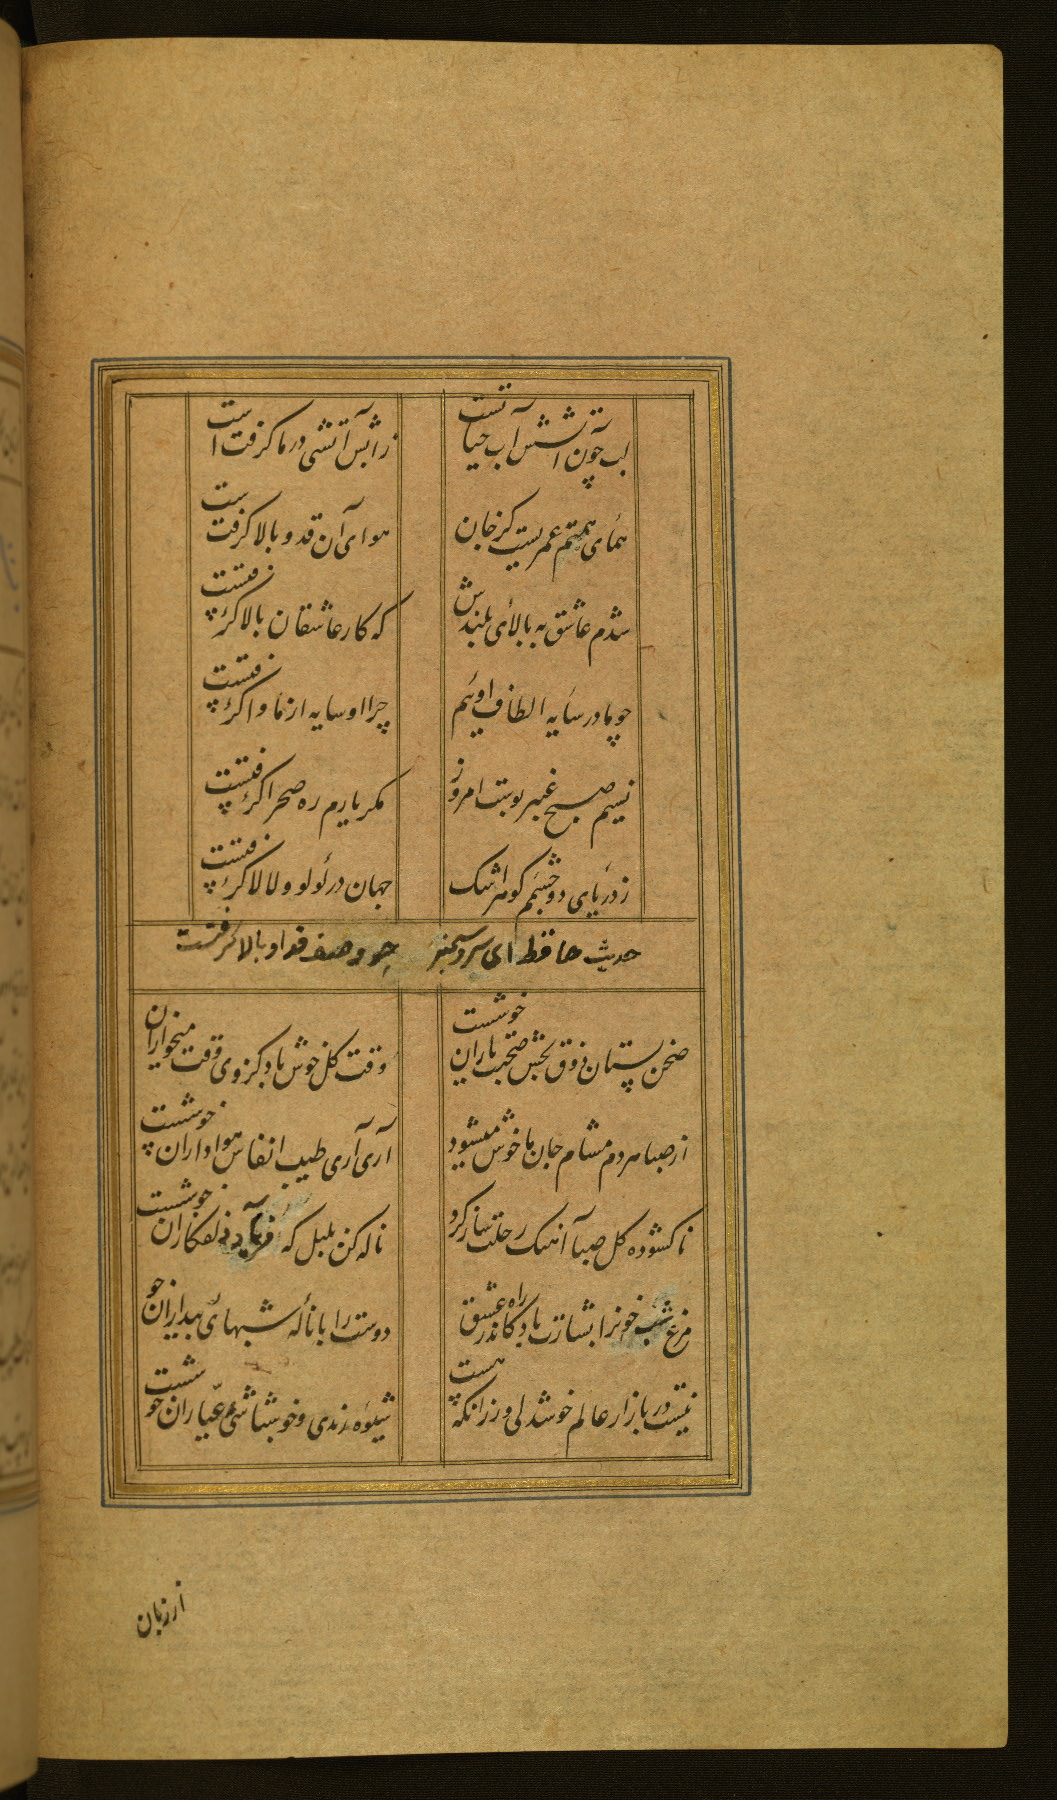 لب چون آتشش آب حیاتست
ز آبش آتشی در ما گرفت است
همای همتم عمریست کز جان
هوای آن قد و بالا گرفتست
شدم عاشق به بالای بلندش
که کار عاشقان بالا گرفتست
چو ما در سایه الطاف اوئیم
چرا او سایه از ما واگرفتست
نسیم صبح عنبر بوست امروز
مگر یارم ره صحرا گرفتست
ز دریای دو چشمم گوهر اشک
جهان در لولو و لالا گرفتست
حدیث حافظ ای سرو سمنبر
چو وصف قد او بالا گرفتست
صحن بستان ذوق بخش صحبت یاران خوشست
وقت گل خوش باد کز وی وقت میخواران
از صبا هردم مشام جان ما خوش میشود
آری آری طیب انفاس هواداران خوشست
ناکشوده گل صبا آهنگ رحلت ساز کرد
ناله کن بلبل که فریاد دلفکاران خوشست
مرغ شب خونرا بشارت باد کاندر راه عشق
دوست را با نالهٔ شبهای بیداران خو
نیست در بازار عالم خوشدلی ورزانکه هست
شیوه رندی و خوشباشی عیاران خوشست
از زبان